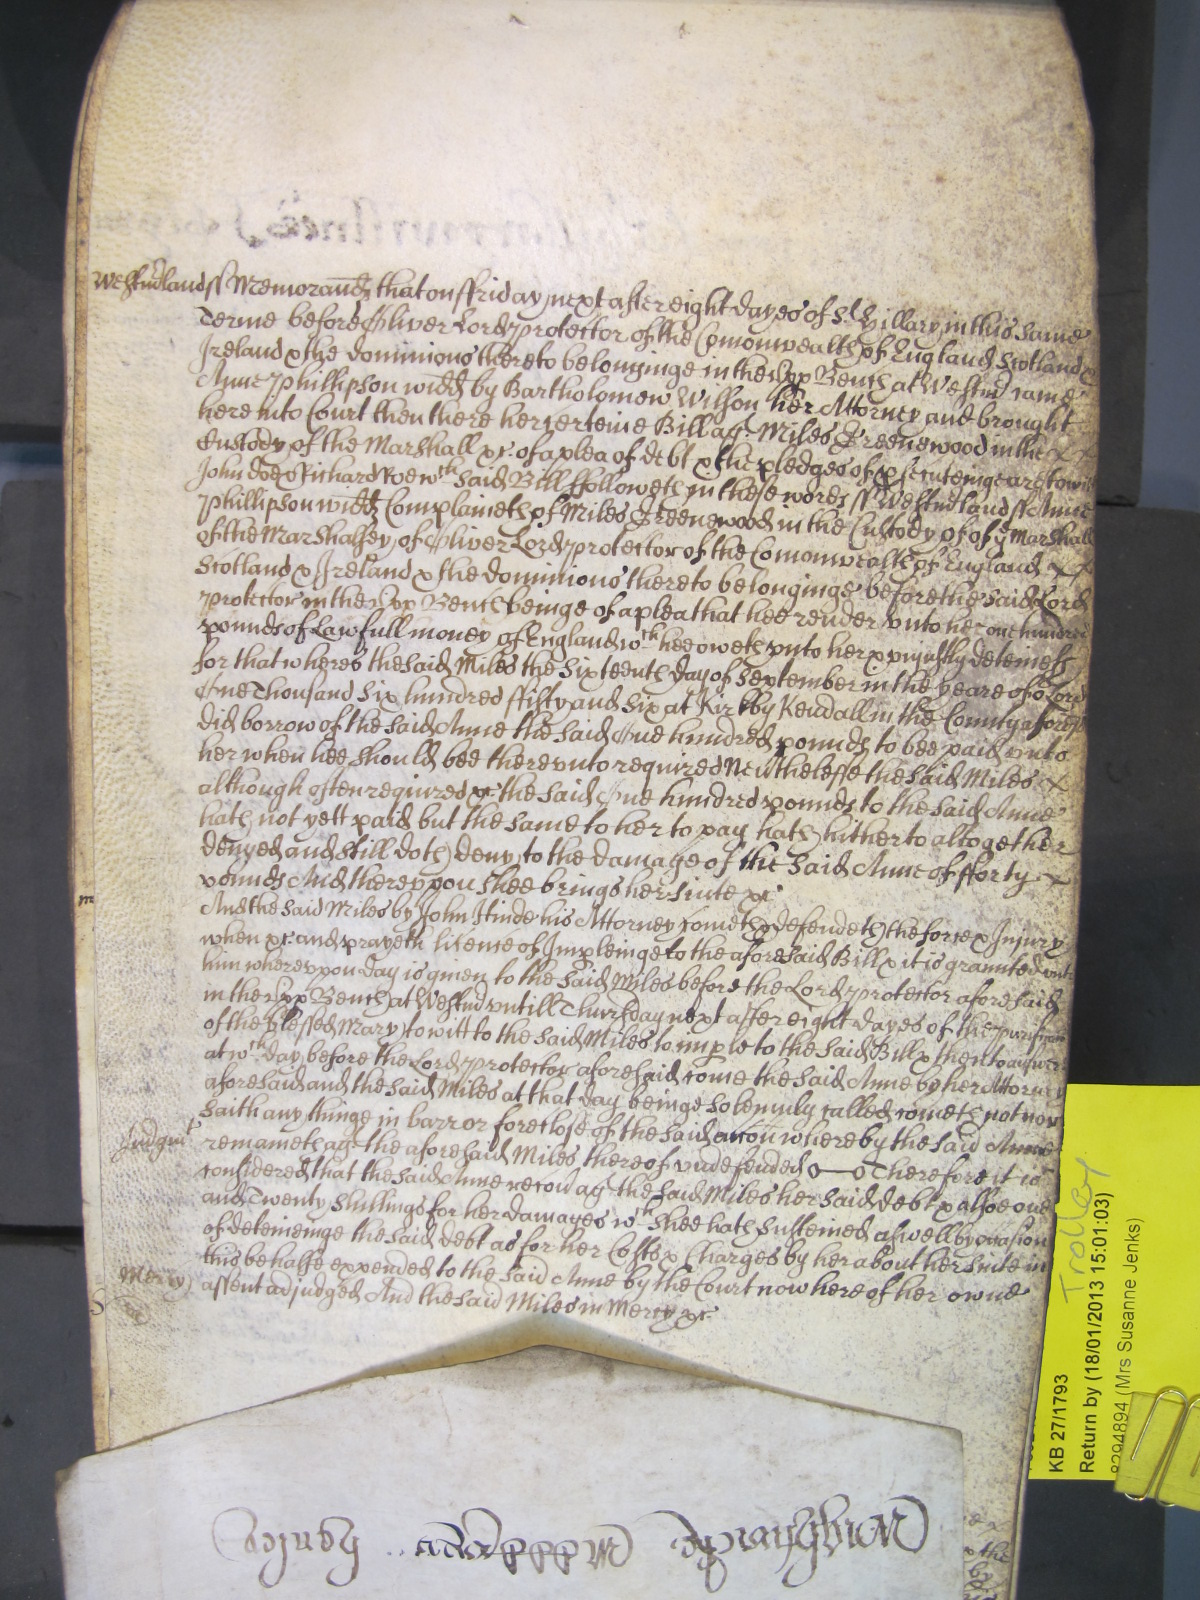 Westmerland ss Memorand that on ffriday next after eight dayes of St Hillary in this same
Terme before Oliver Lord Protector of the Comonwealth of England Scotland &
Ireland & the dominions thereto belonginge in the Upp Bench at Westm came
Anne Phillipson widd by Bartholomew Wilson her Attorney and brought
here into Court then there her certeine Bill agt Miles Greenewood in the
Custody of the Marshall &c of a plea of debt & the pledges of prsecuteinge are to witt
John Doe & Richard Roe wch said Bill ffolloweth in these words ss Westmland ss Anne
Phillipson widd Complaineth of Miles Greenewood in the Custody of of ye Marshall
of the Marshalsey of Oliver Lord Protector of the Comonwealth of England
Scotland & Ireland & the dominions thereto belonginge before the said Lord
Protector in the Upp Bench beinge of a plea that hee render unto her one hundred
pounds of lawfull money of England wch hee oweth unto her & unjustly deteineth
for that wheres the said Miles the sixteenth day of September in the yeare of or Lord
One Thousand six hundred ffifty and six at Kirkby Kendall in the County aforesd
did borrow of the said Anne the said One hundred pounds to bee paid unto
her when hee should bee thereunto required Nevthelesse the said Miles
although often required &c the said One hundred pounds to the said Anne
hath not yett paid but the same to her to pay hath hitherto altogether
denyed and still doth deny to the damage of the said Anne of fforty
pounds And thereuppon shee brings her suite &c
And the said Miles by John Hinde his Attorney cometh & defendeth the force & Injury
when &c and prayeth licence of Impleinge to the aforesaid Bill & it is graunted unto
him whereuppon day is given to the said Miles before the Lord Protector aforesaid
in the Upp Bench at Westm untill Thursday next after eight dayes of the purificacon
of the blessed Mary to witt to the said Miles to imple to the said Bill & then to answer
at wch day before the Lord Protector aforesaid come the said Anne by her Attorney
aforesaid and the said Miles at that day beinge solemnly called cometh not nor
saith any thinge in barr or foreclose of the said accon whereby the said Anne
Judgmt
remaineth agt the aforesaid Miles thereof undefended Therefore it is
considered that the said Anne recou agt the said Miles her said debt & alsoe one
and Twenty shillings for her damages wch shee hath susteined aswell by occasion
of deteineinge the said debt as for her Costs & Charges by her about her suite in
this behalfe expended to the said Anne by the Court now here of her owne
Mercy
assent adjudged And the said Miles in Mercy &c
Trolley
KB 27/1793
Return by (18/01/2013 15:01:03)
8294894 (Mrs Susanne Jenks)